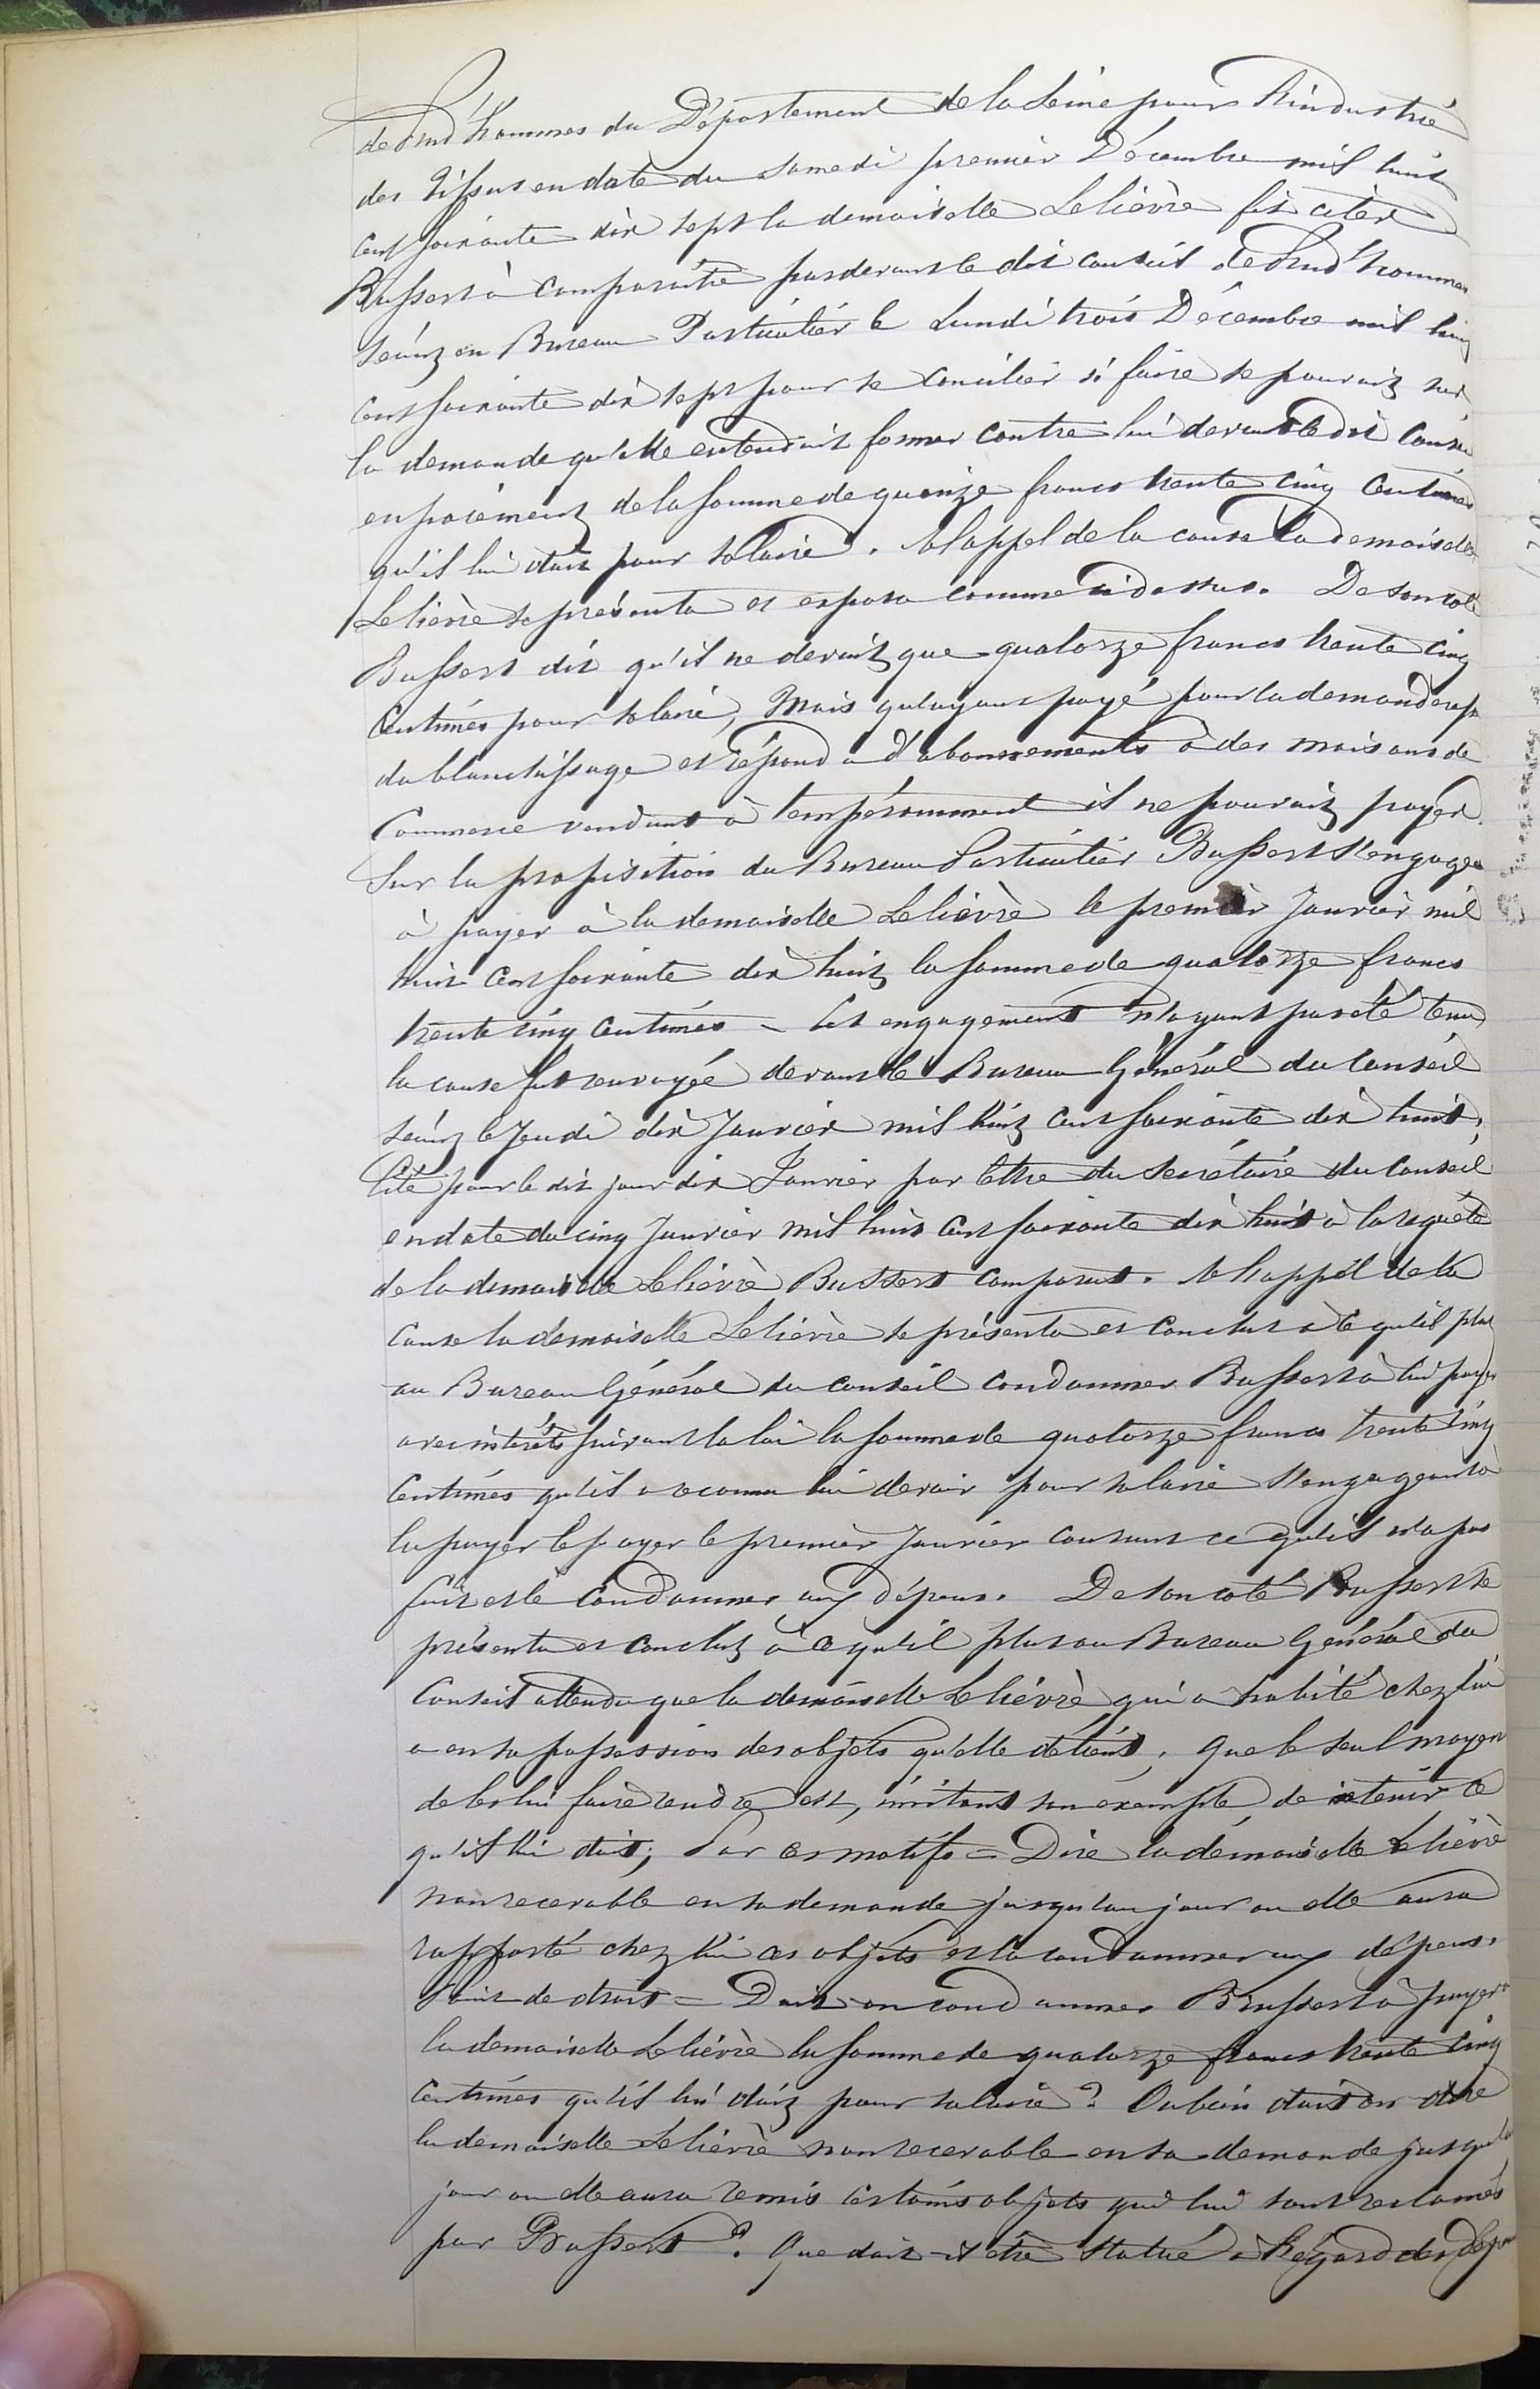 de Prud'hommes du Département de la Seine pour l'industrie
des Tissus en date du samedi premier Décembre mil huit
cent soixante dix sept la demoiselle Lelièvre fit citer
Bussert à comparaître pardevant le dit conseil de Prud'hommes
séant en Bureau Particulier le Lundi trois Décembre mil huit
cent soixante dix sept pour se concilier si faire se pouvait sur
la demande qu'elle entendait former contre lui devant le dit Conseil
en paiement de la somme de quinze francs trente cinq centimes
qu'il lui doit pour salaire. A l'appel de la cause la demoiselle
Lelièvre se présenta et exposa comme ci dessus. De son coté
Bussert dit qu'il ne devait que quatorze francs trente cinq
centimes pour salaire, Mais qu'ayant payé pour la demanderesse
du blanchissage et répondu d'abonnements à des maisons de
Commerce vendant à tempéramment il ne pouvait payer.
Sur la proposition du Bureau Particulier Bussert s'engagea
à payer à la demoiselle Lelièvre le premier Janvier mil
huit cent soixante dix huit la somme de quatorze francs
trente cinq centimes – Cet engagement n'ayant pas été tenu
la cause fut renvoyée devant le Bureau Général du Conseil
séant le Jeudi dix Janvier mil huit cent soixante dix huit.
Cité pour le dit jour dix Janvier par lettre du secrétaire du Conseil
en date du cinq Janvier mil huit cent soixante dix huit à la requête
de la demoiselle Lelièvre Bussert comparut. A l'appel de la
cause la demoiselle Lelièvre se présenta et conclut à ce qu'il plut
au Bureau Général du conseil condamner Bussert à lui payer
avec intérêts suivant la loi la somme de quatorze francs trente cinq
centimes qu'il a reconnu lui devoir pour salaire s'engageant à
la payer le payer le premier Janvier courant ce qu'il n'a pas
fait et le condamner aux dépens. De son coté Bussert se
présenta et conclut à ce qu'il plut au Bureau Général du
Conseil attendu que la demoiselle Lelièvre qui a habité chez lui
a en sa possession des objets qu'elle détient, que le seul moyen
de les lui faire rendre est, imitant son exemple de retenir ce
qu'il lui doit; Par ces motifs = Dire la demoiselle Lelièvre
non recevable en sa demande jusqu'au jour ou elle aura
rapporté chez lui ces objets et la condamner aux dépens.
Point de droit = Doit-on condamner Bussert à payer à
la demoiselle Lelièvre la somme de quatorze francs trente cinq
centimes qu'il lui doit pour salaire? Ou bien doit-on dire
la demoiselle Lelièvre non recevable en sa demande jusqu'au
jour ou elle aura remis certains objets qui lui sont réclamés
par Bussert? Que doit-il être statué à l'égard des dépens